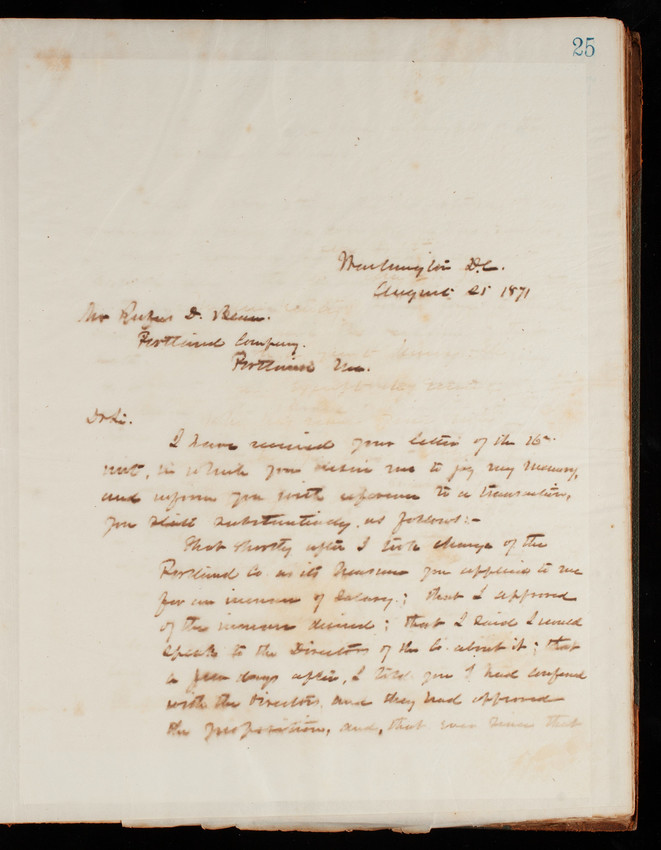 25
Washington D.C.
August 21 1871
Mr Rufus D. Bean.
Portland Company.
Portland Me.
Dr Sir.
I have received your letter of the 16"
inst, in which you desire me to jog my memory,
and inform you with reference to a transaction,
you state substantively, as follows:-
That shortly after I took charge of the
Portland Co. as its Treasurer you applied to me
for an increase of salary; that I approved
of the increase desired; that I said I would
speak to the Directors of the Co. about it; that
a few days after, I told you I had conferred
with the Directors, and they had approved
the proposition, and, that ever since that